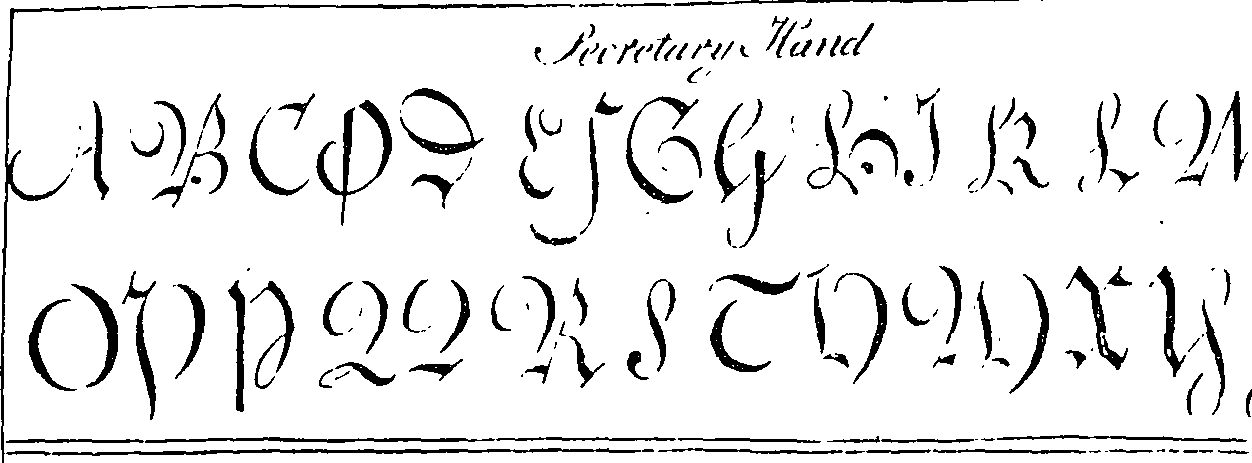 Secretary Hand
A B C D D E F G G H I K L M
O P P Q Q R S T V W X Y